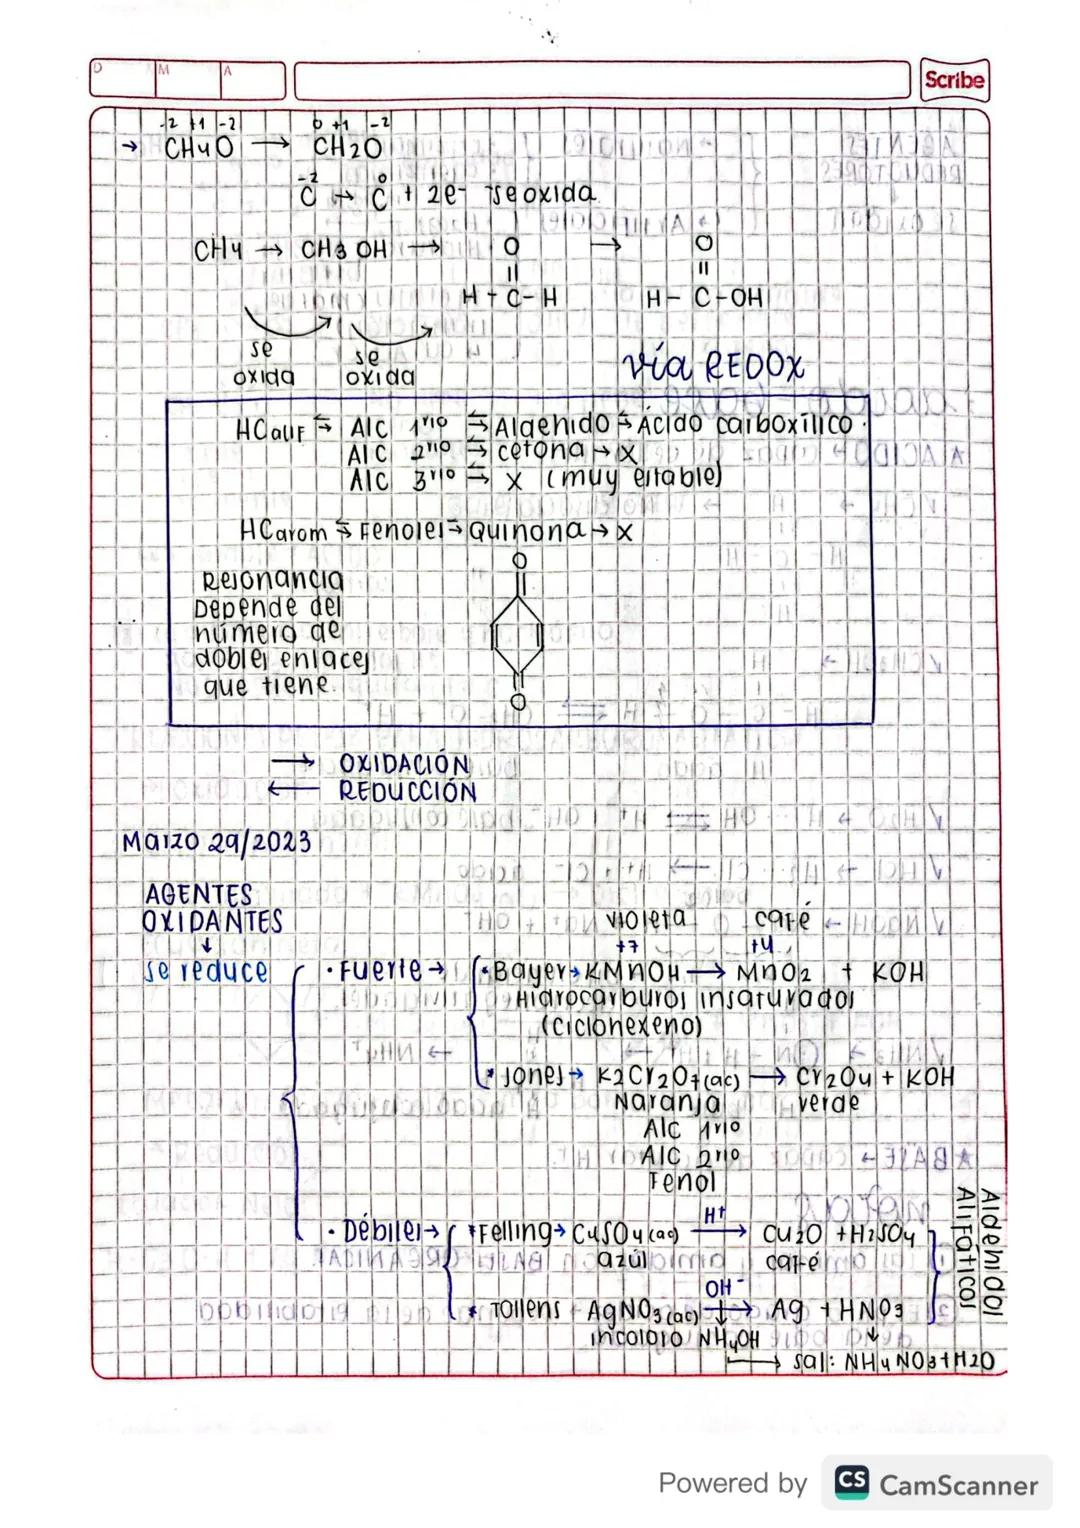 D M A
Scribe
-2 +1 -2 0 +1 -2
→ CH4O → CH2O
-2 0
C → C + 2e- → se oxida
CH4 → CH3OH → O → O
H - C - H H - C - OH
se se
oxida oxida
vía REDOX
HCalif ⇆ Alc 1rio ⇆ Aldehido ⇆ Ácido carboxílico
Alc 2rio ⇆ cetona → X
Alc 3rio ⇆ X (muy estable)
HCarom ⇆ Fenoles ⇆ Quinona → X
O
Resonancia
Depende del
número de
dobles enlaces
que tiene.
O
→ OXIDACIÓN
← REDUCCIÓN
Marzo 29/2023
AGENTES
OXIDANTES
↓
se reduce
violeta café
+7 +4
• Fuerte → • Bayer → KMnOH → MnO2 + KOH
Hidrocarburos insaturados
(ciclohexeno)
• Jones → K2Cr2O7(ac) → Cr2O4 + KOH
Naranja verde
Alc 1rio
Alc 2rio
Fenol
H+
• Débiles → * Felling → CuSO4(aq) → Cu2O + H2SO4
azúl café
OH-
* Tollens AgNO3(ac) → Ag + HNO3
incoloro NH4OH
→ sal: NH4NO3 + H2O
Aldehidos
Alifáticos
Powered by CS CamScanner